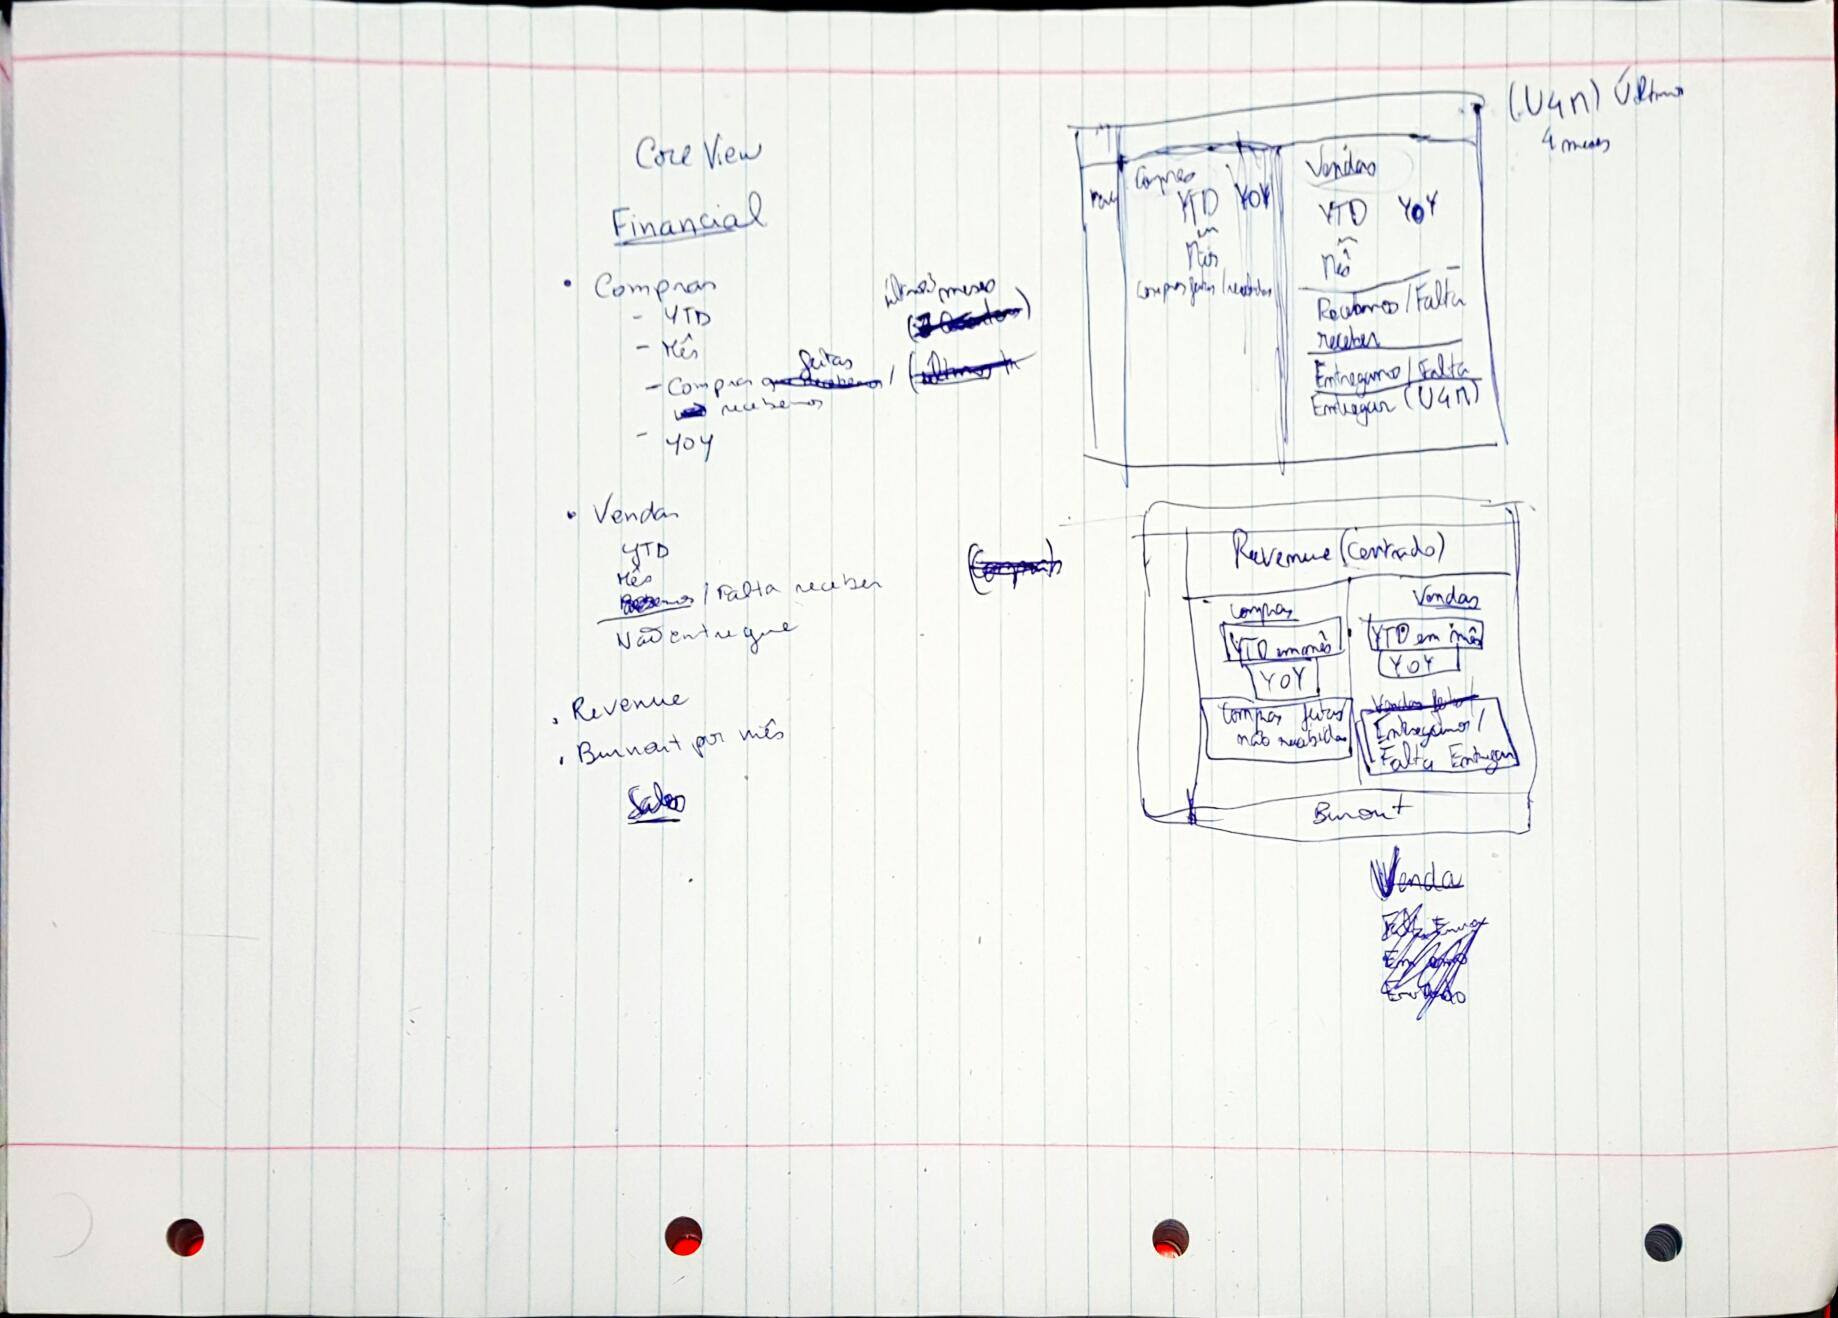 Core View
Financial
• Compras
- YTD
- Mês
últimos meses
feitas
- Compras /
recebemos
- YOY
• Vendas
YTD
Mês
/ Falta receber
Não entregue
• Revenue
• Burnout por mês
(U4M) Últimos
4 meses
Compras
YTD YOY
Mês
Compras feitas / recebidas
Vendas
YTD YOY
Mês
Recebemos / Falta
receber
Entregamos / Falta
Entregar (U4M)
Revenue (Centrado)
Compras
YTD em mês
YOY
Compras feitas
não recebidas
Vendas
YTD em mês
YOY
Entregamos /
Falta Entregar
Burnout
Venda